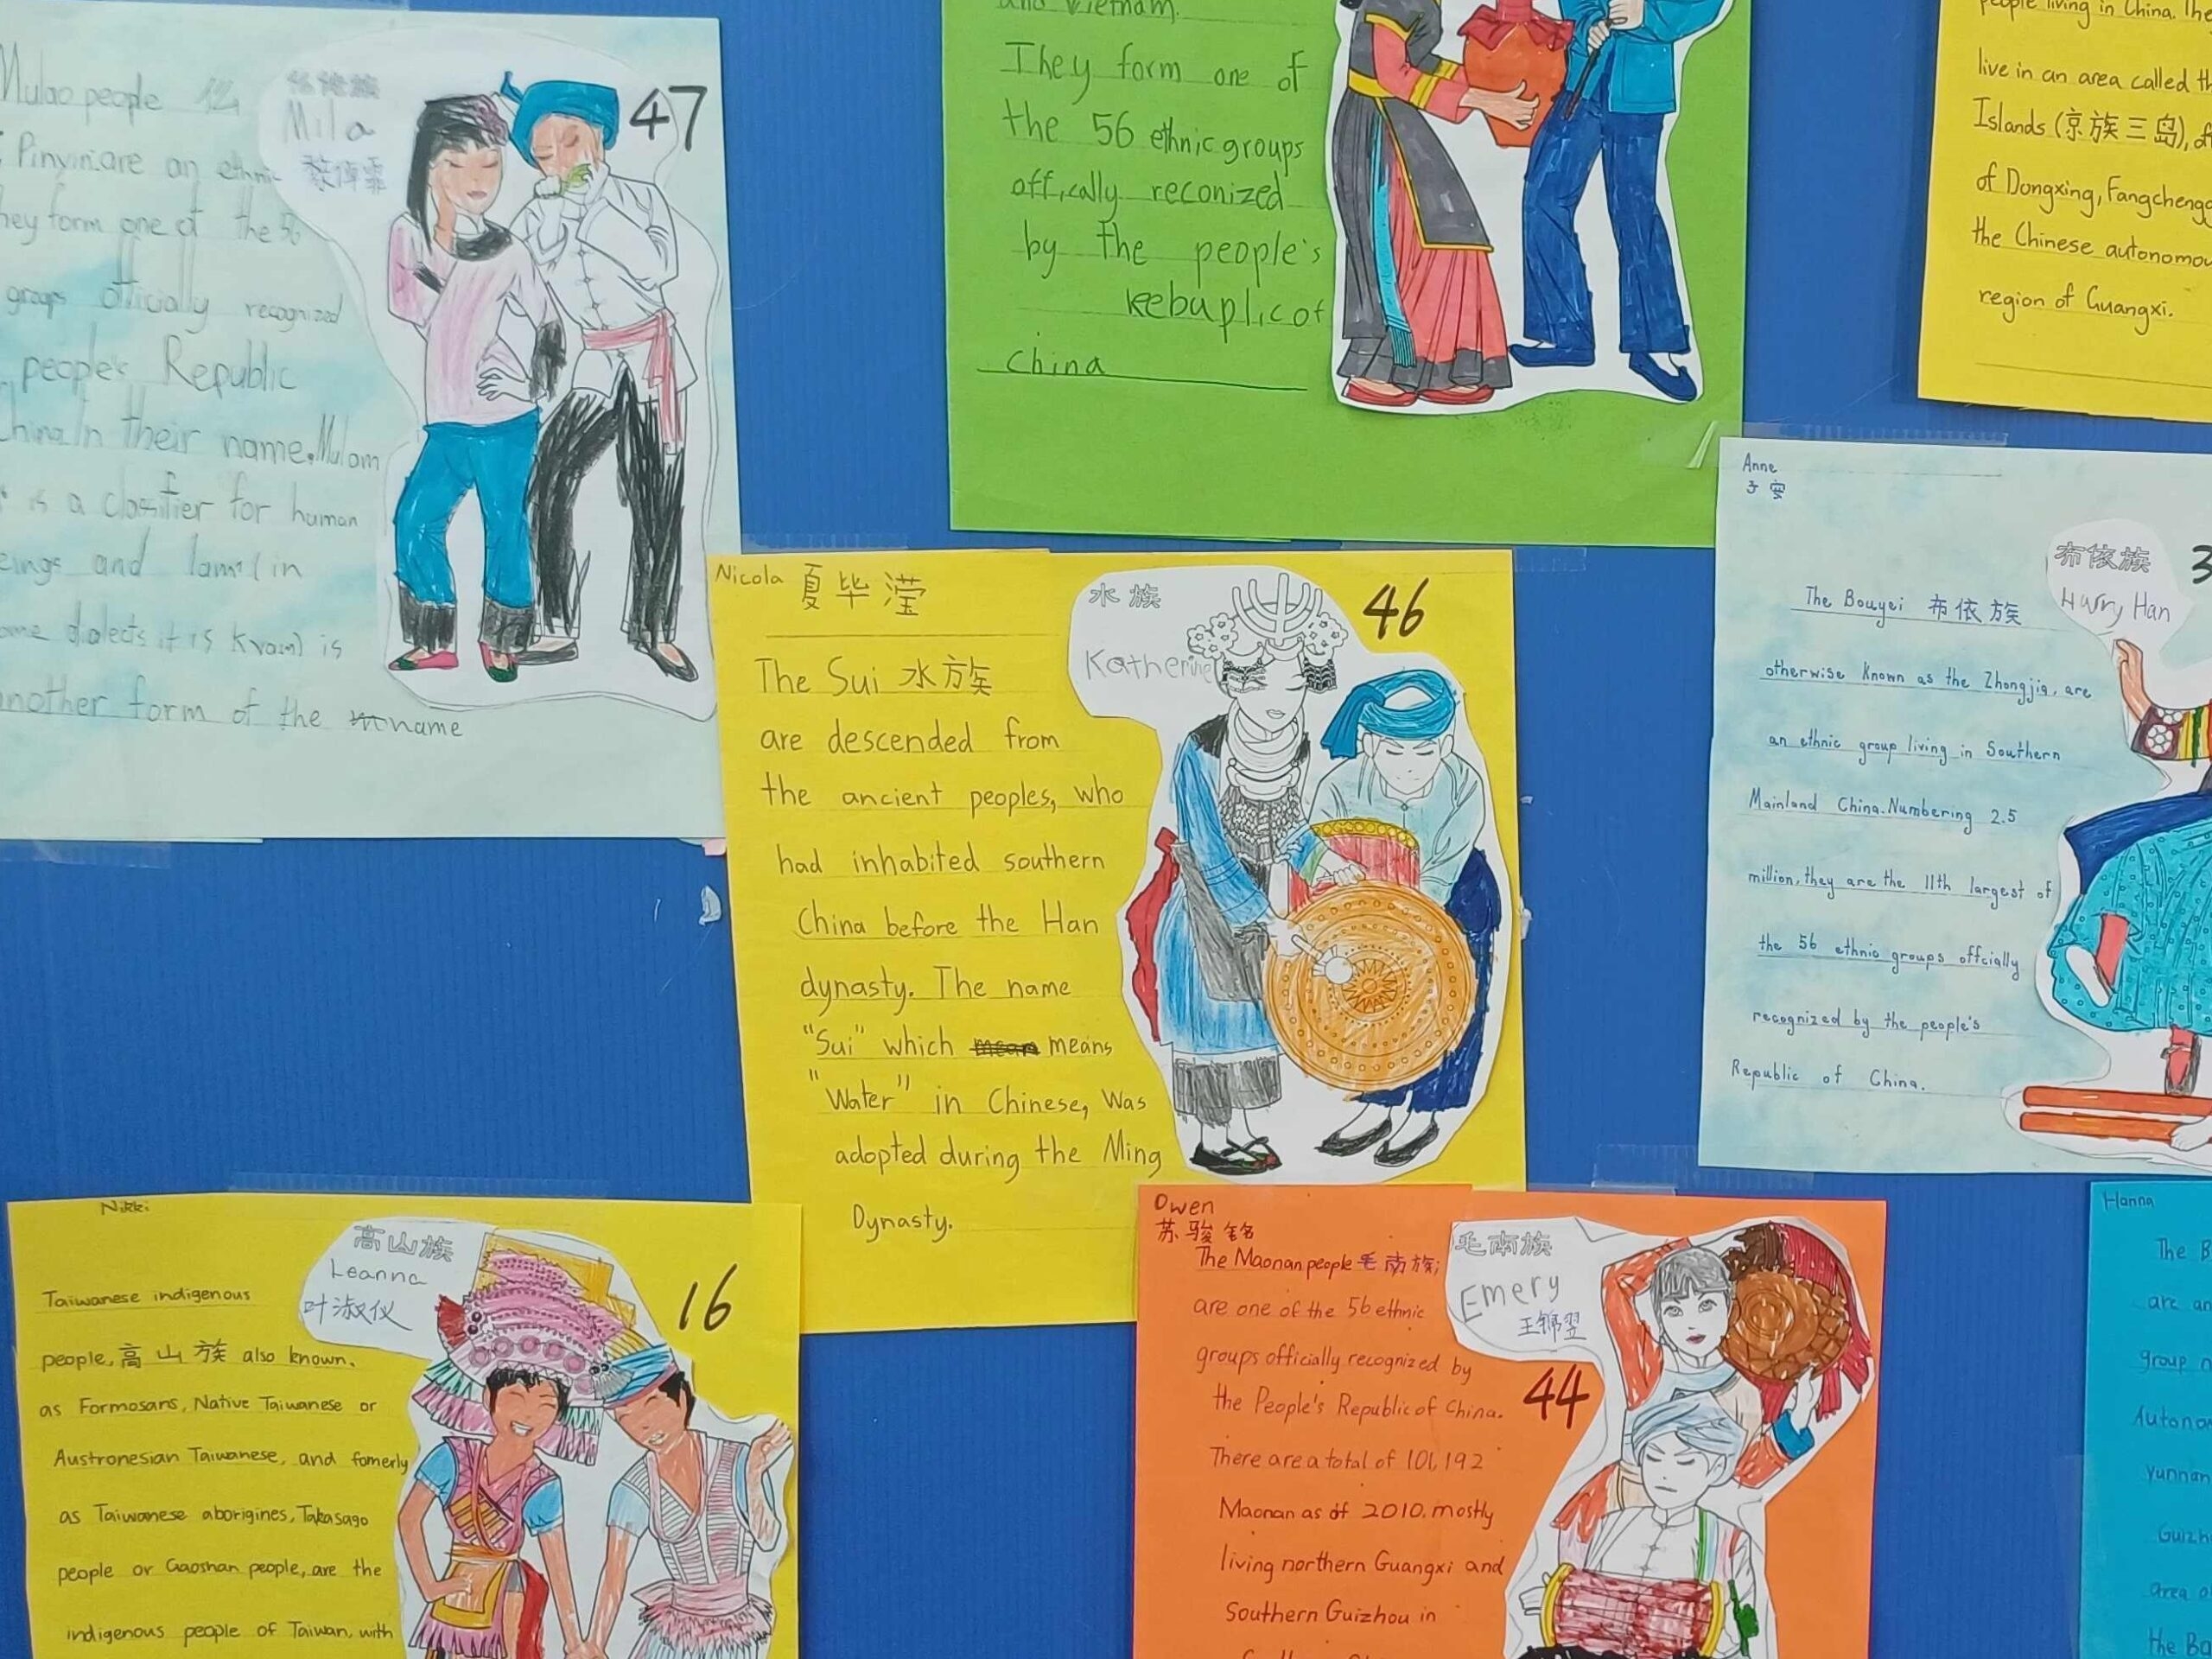 Mulao people
仫佬族
Mila
47
Pinyin are an ethnic
they form one of the 56
groups officially recognized
people's Republic
China In their name. Mulam
is a classifier for human
and lam (in
dialects it is kyam) is
another form of the name
and Vietnam.
They form one of
the 56 ethnic groups
offically reconized
by the people's
Rebuplic of
China
people living in China. The
live in an area called th
Islands (京族三岛),
of Dongxing, Fangchengg
the Chinese autonomou
region of Guangxi.
Nicola 夏毕滢
水族
Katherine
46
The Sui 水族
are descended from
the ancient peoples, who
had inhabited southern
China before the Han
dynasty. The name
"Sui" which mean means
"Water" in Chinese, was
adopted during the Ming
Dynasty.
Anne
子安
布依族
Harry Han
3
The Bouyei 布依族
otherwise known as the Zhongjia, are
an ethnic group living in Southern
Mainland China. Numbering 2.5
million, they are the 11th largest of
the 56 ethnic groups offcially
recognized by the people's
Republic of China.
Nikki
高山族
Leanna
叶淑仪
16
Taiwanese indigenous
people, 高山族 also known.
as Formosans, Native Taiwanese or
Austronesian Taiwanese, and fomerly
as Taiwanese aborigines, Takasago
people or Gaoshan people, are the
indigenous people of Taiwan, with
Owen
苏骏铭
毛南族
Emery
44
The Maonan people 毛南族;
are one of the 56 ethnic
groups officially recognized by
the People's Republic of China.
There are a total of 101,192
Maonan as of 2010. mostly
living northern Guangxi and
Southern Guizhou in
Hanna
The B
are an
group n
Autono
Yunnan
Guizh
area o
the Bo